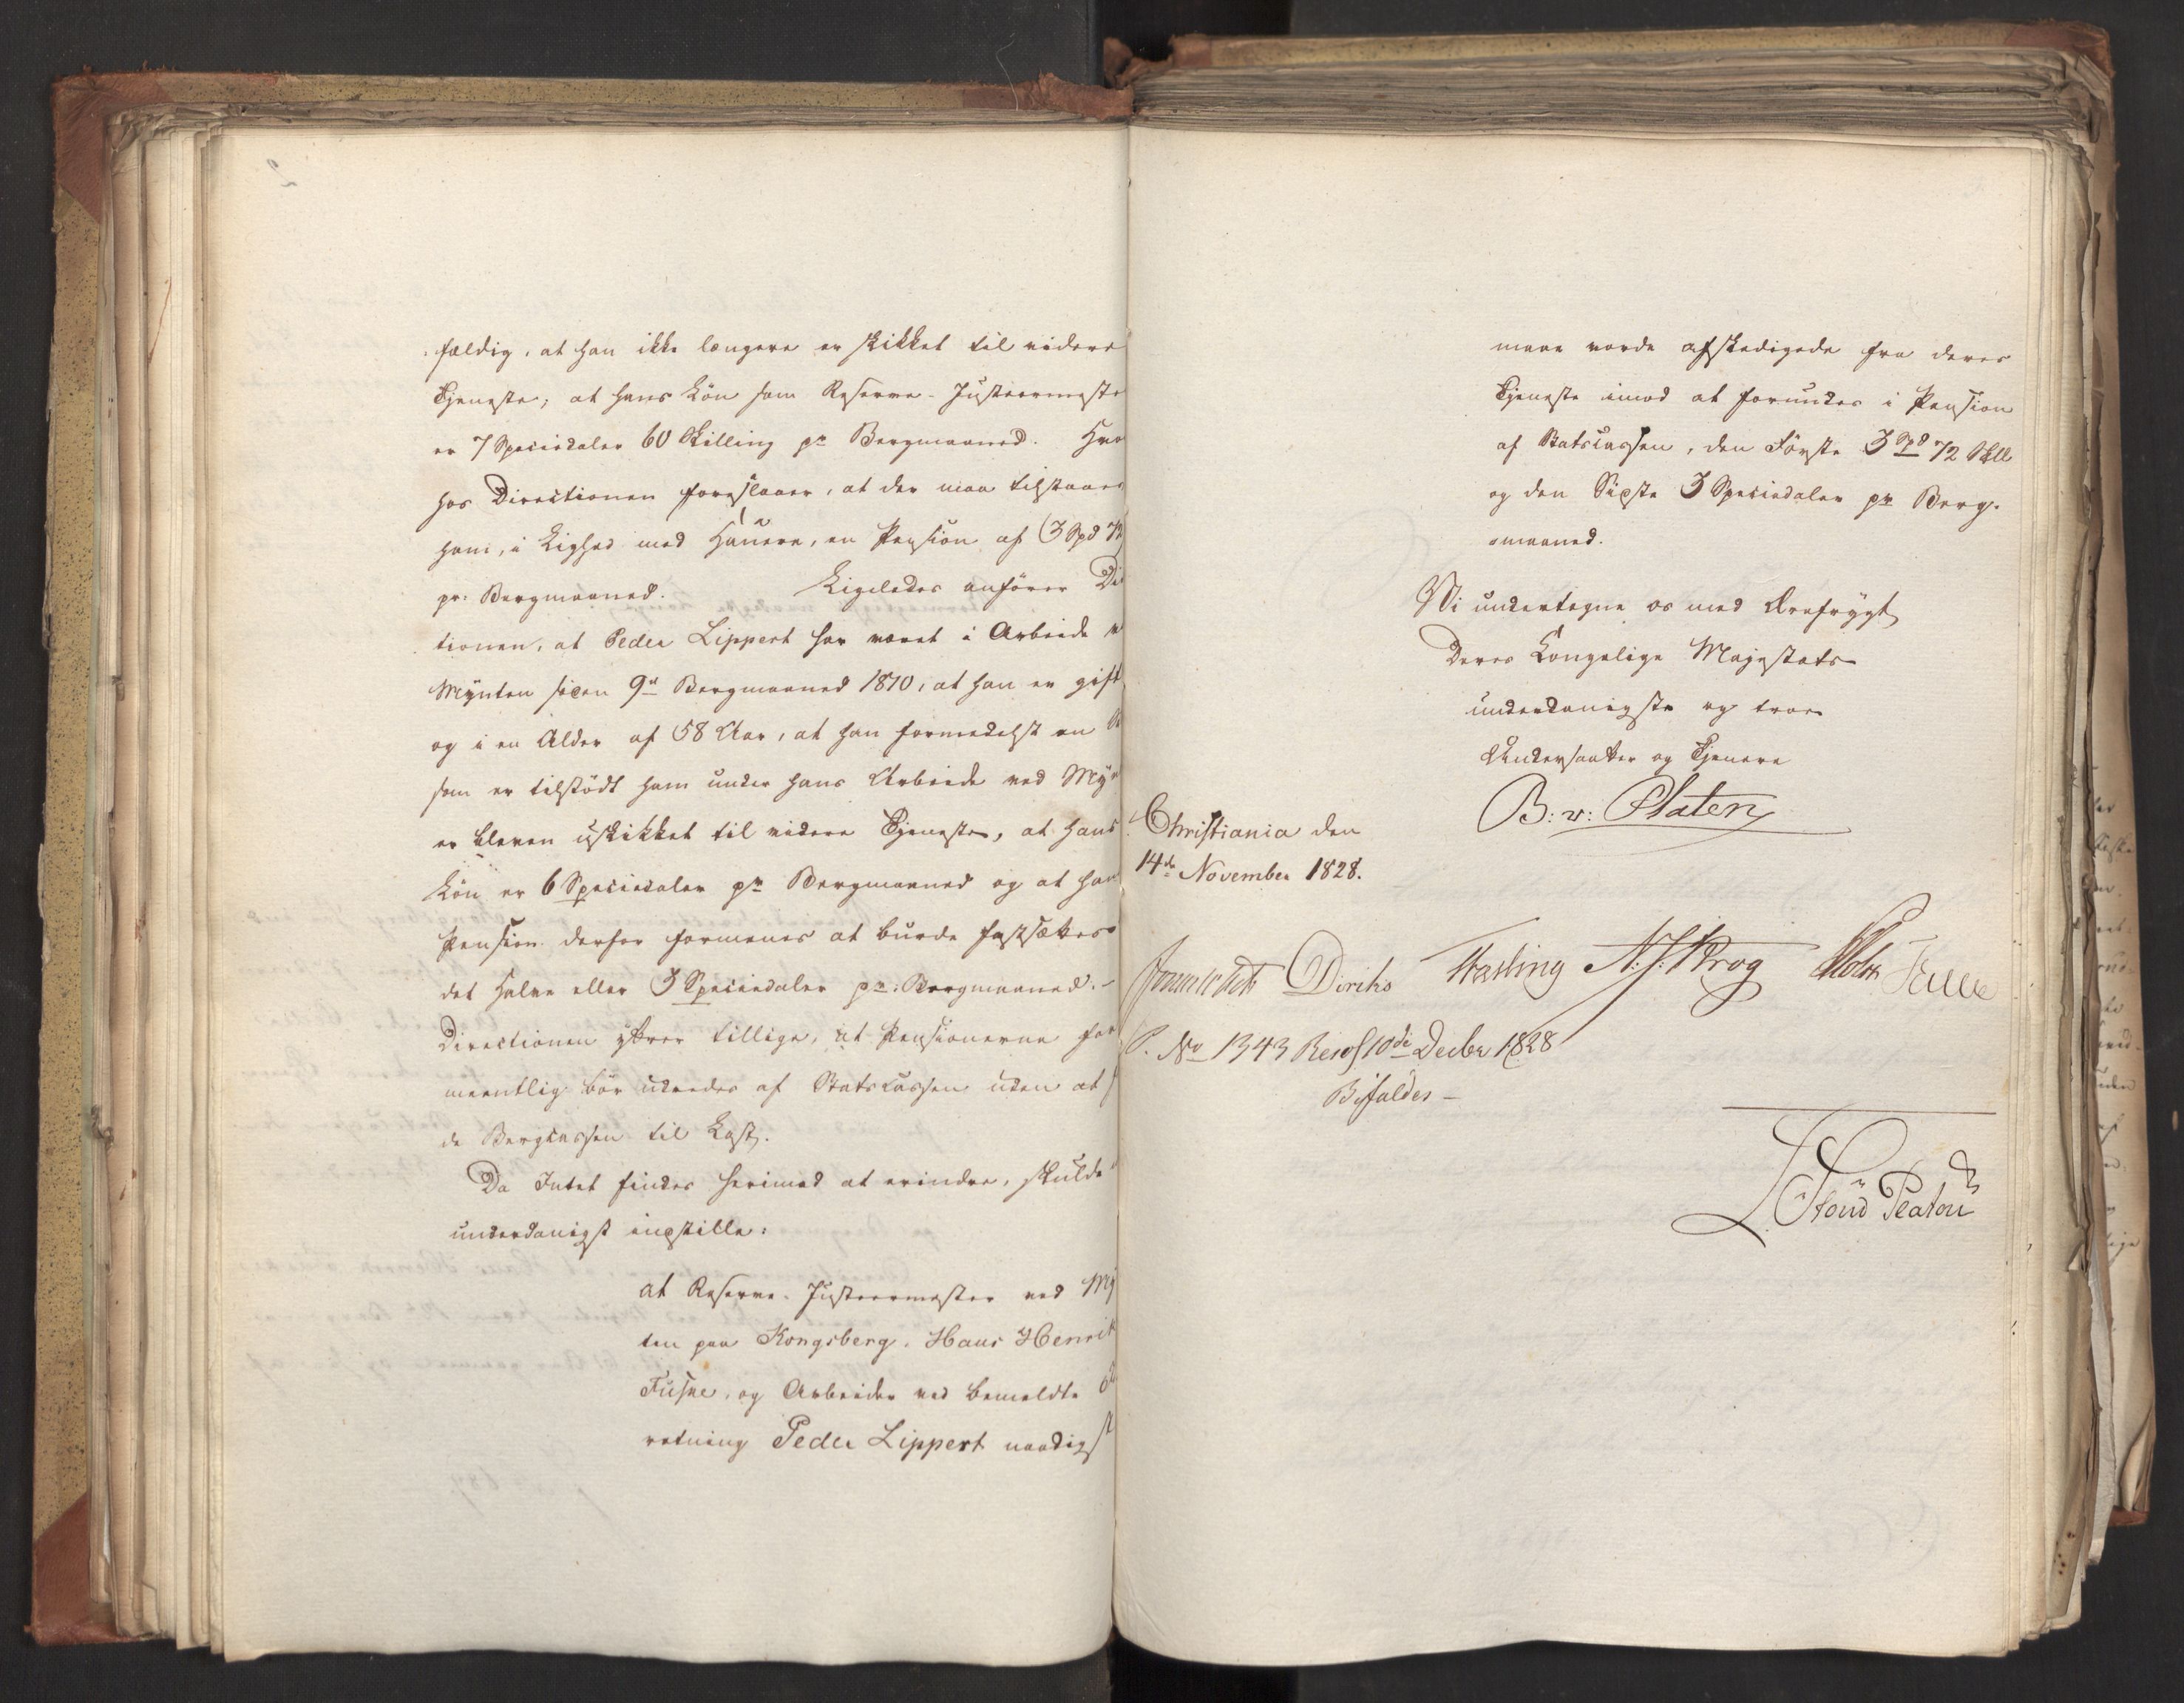 fældig, at han ikke længere er skikket til videre
Tjeneste; at hans Lön som Reserve-Justeermeste
er 7 Speciedaler 60 Skilling pr Bergmaaned. Hvor
hos Directionen foreslaaer, at der maa tilstaaes
ham, i Lighed med Hauere, en Pension af 3 Spd 72
pr: Bergmaaned. Ligeledes anförer Di
tionen, at Peder Lippert har været i Arbeide v
Mynten siden 9de Bergmaaned 1810, at han er gift
og i en Alder af 58 Aar, at han formedelst en
som er tilstödt ham under hans Arbeide ved Myn
er bleven uskikket til videre Tjeneste, at hans
Lön er 6 Speciedaler pr Bergmaaned og at han
Pension derfor formenes at burde fastsættes
det Halve eller 3 Speciedaler pr: Bergmaaned. -
Directionen yttrer tillige, at Pensionerne for
meentlig bör udredes af Statscassen uden at
de Bergcassen til Last.
Da Intet findes herimod at erindre, skulde
underdanigst indstille:
at Reserve-Justeermester ved My
ten paa Kongsberg, Hans Henrik
Fusne, og Arbeider ved bemeldte
retning Peder Lippert naadigst
maae vorde afskedigede fra deres
Tjeneste imod at forundes i Pension
af Statscassen, den Förste 3 Spd 72 Skll
og den Sidste 3 Speciedaler pr Berg-
maaned.
Vi undertegne os med Ærefrygt
Deres Kongelige Majestæts
underdanigste og troe
Undersaatter og Tjenere
B: v: Platen
Christiania den
14de November 1828.
Diriks Fasting N. J. Krog Holst
P. No 1343 Resol 10de Decbr 1828
Bifaldes -